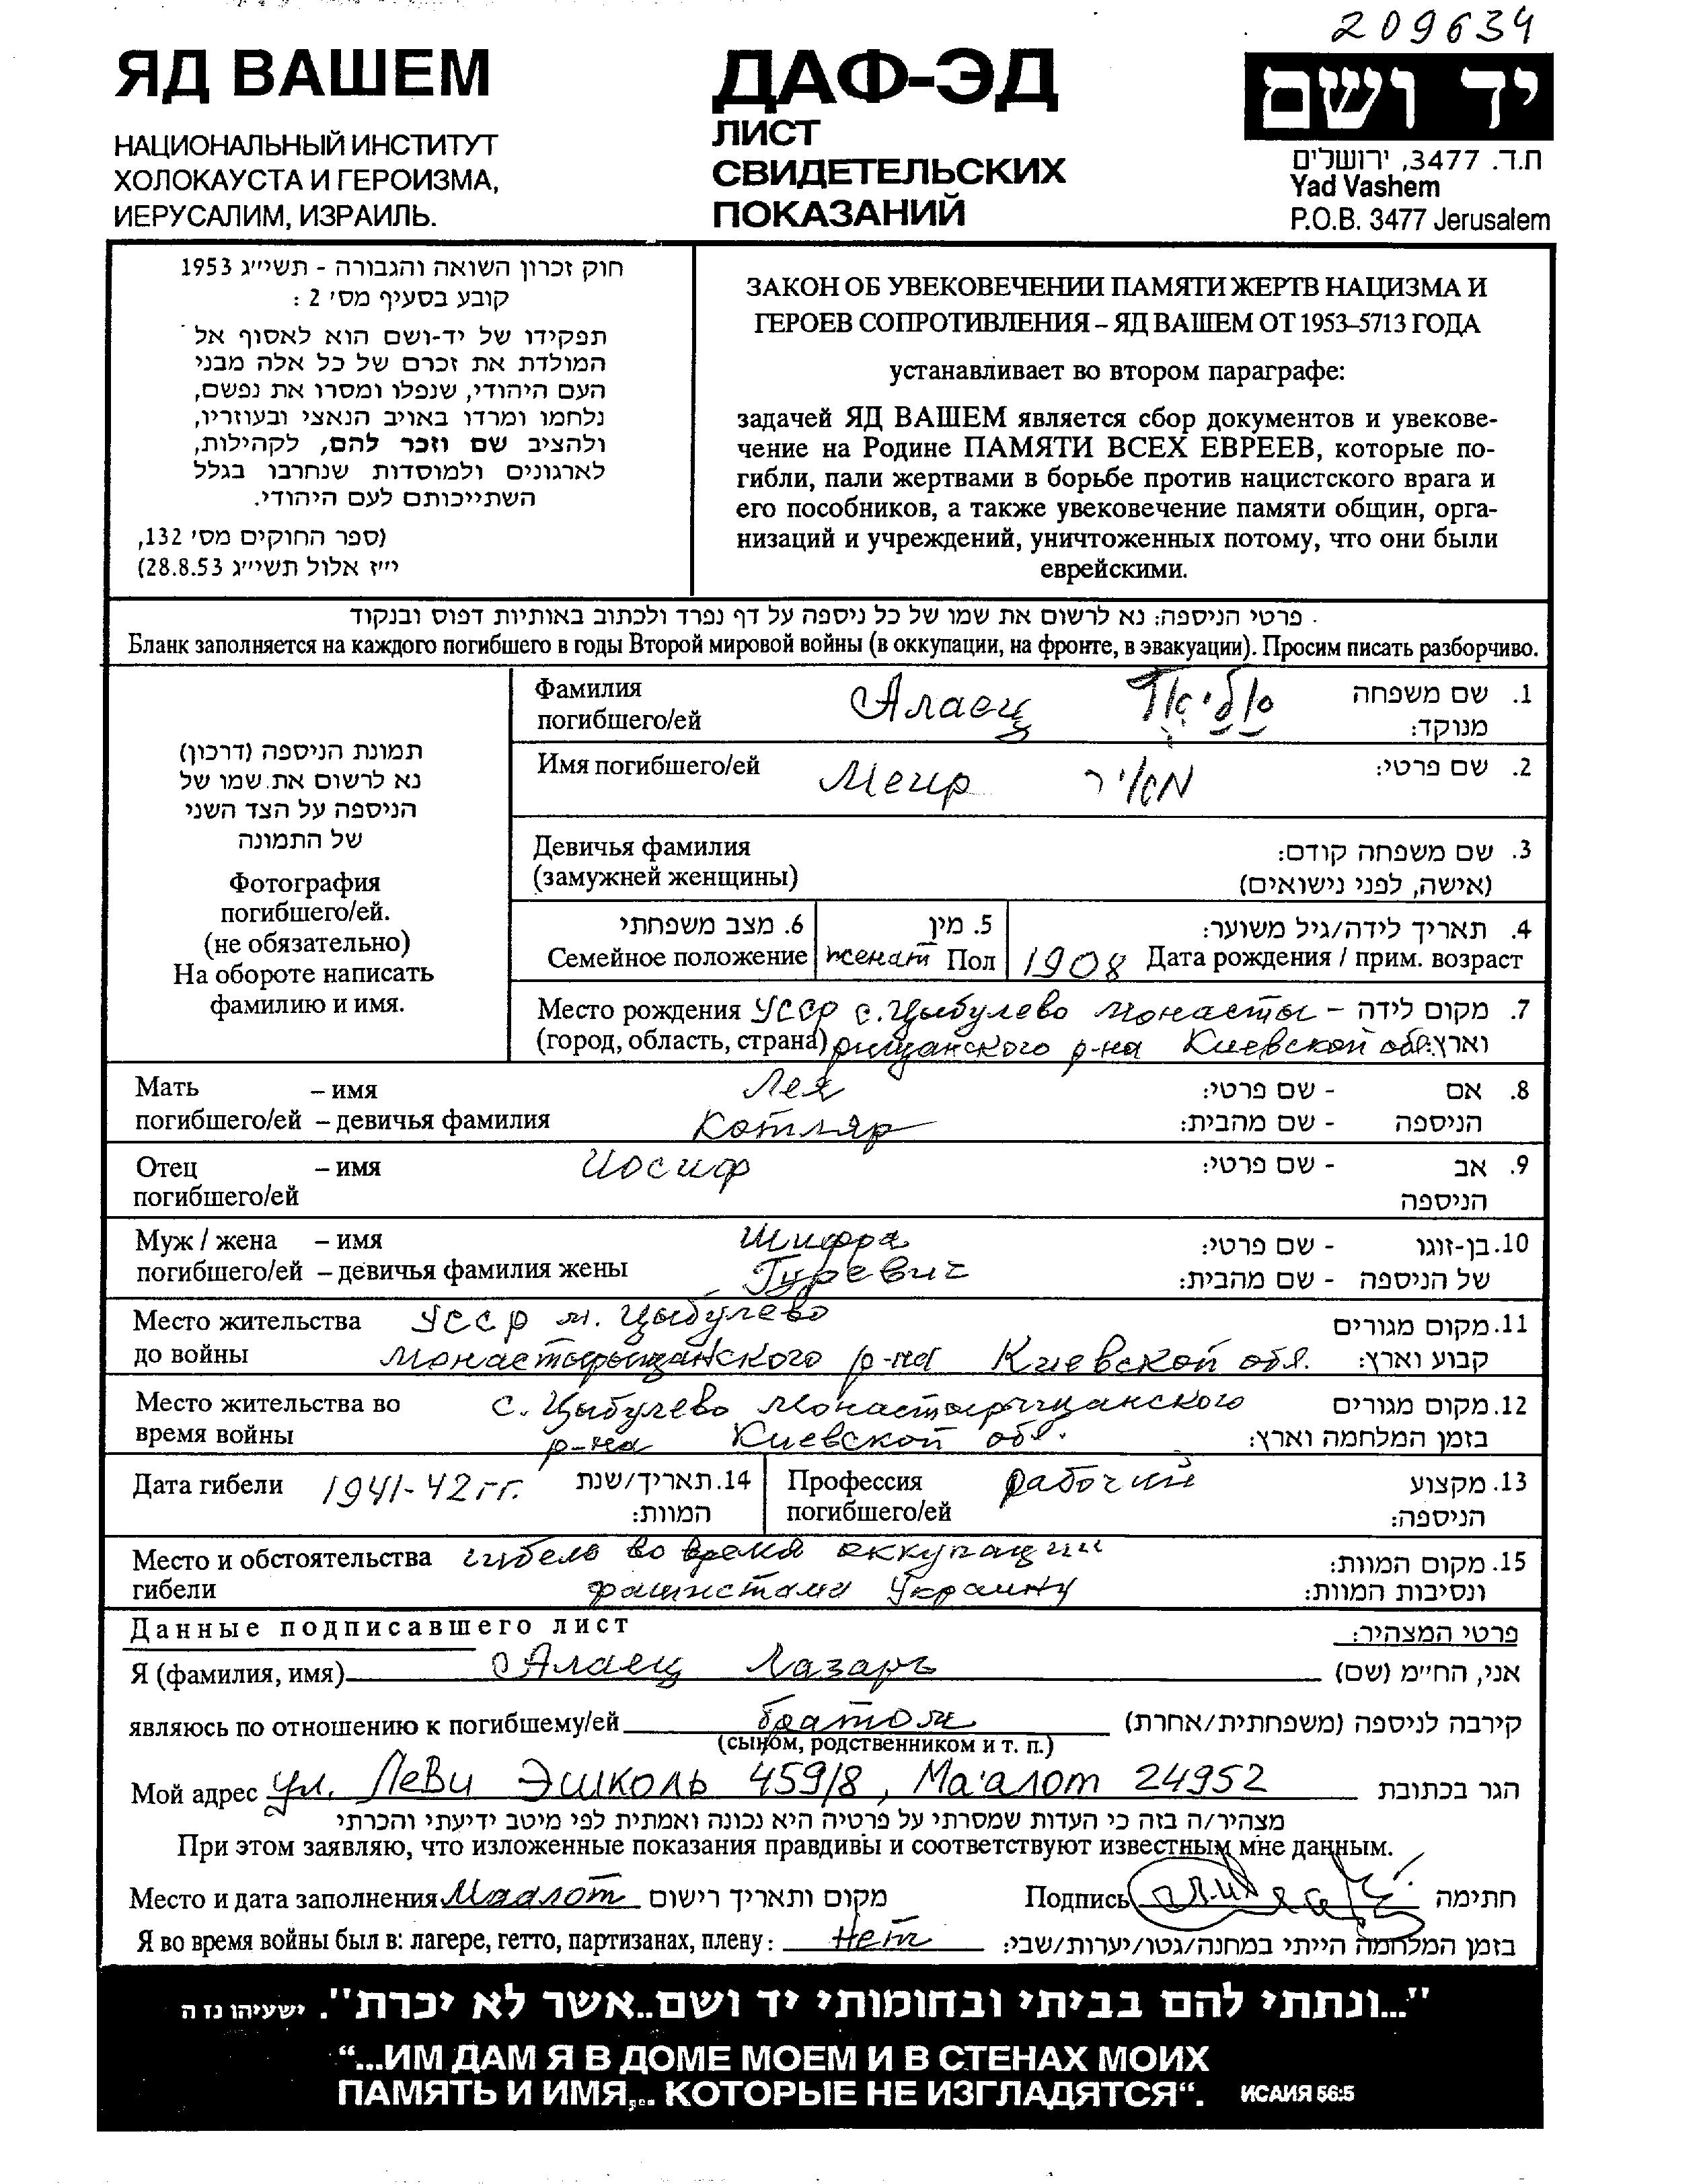 209634
ЯД ВАШЕМ
НАЦИОНАЛЬНЫЙ ИНСТИТУТ
ХОЛОКАУСТА И ГЕРОИЗМА,
ИЕРУСАЛИМ, ИЗРАИЛЬ.
ДАФ-ЭД
ЛИСТ
СВИДЕТЕЛЬСКИХ
ПОКАЗАНИЙ
יד ושם
ת.ד. 3477, ירושלים
Yad Vashem
P.O.B. 3477 Jerusalem
חוק זכרון השואה והגבורה - תשי״ג 1953
קובע בסעיף מס׳ 2 :
תפקידו של יד-ושם הוא לאסוף אל
המולדת את זכרם של כל אלה מבני
העם היהודי, שנפלו ומסרו את נפשם,
נלחמו ומרדו באויב הנאצי ובעוזריו,
ולהציב שם וזכר להם, לקהילות,
לארגונים ולמוסדות שנחרבו בגלל
השתייכותם לעם היהודי.
(ספר החוקים מס׳ 132,
י״ז אלול תשי״ג 28.8.53)
ЗАКОН ОБ УВЕКОВЕЧЕНИИ ПАМЯТИ ЖЕРТВ НАЦИЗМА И
ГЕРОЕВ СОПРОТИВЛЕНИЯ – ЯД ВАШЕМ ОТ 1953–5713 ГОДА
устанавливает во втором параграфе:
задачей ЯД ВАШЕМ является сбор документов и увекове-
чение на Родине ПАМЯТИ ВСЕХ ЕВРЕЕВ, которые по-
гибли, пали жертвами в борьбе против нацистского врага и
его пособников, а также увековечение памяти общин, орга-
низаций и учреждений, уничтоженных потому, что они были
еврейскими.
פרטי הניספה: נא לרשום את שמו של כל ניספה על דף נפרד ולכתוב באותיות דפוס ובנקוד
Бланк заполняется на каждого погибшего в годы Второй мировой войны (в оккупации, на фронте, в эвакуации). Просим писать разборчиво.
תמונת הניספה (דרכון)
נא לרשום את שמו של
הניספה על הצד השני
של התמונה
Фотография
погибшего/ей.
(не обязательно)
На обороте написать
фамилию и имя.
Фамилия Алаец 1. שם משפחה
погибшего/ей מנוקד:
Имя погибшего/ей Меир מאיר 2. שם פרטי:
Девичья фамилия 3. שם משפחה קודם:
(замужней женщины) (אישה, לפני נישואים)
6. מצב משפחתי 5. מין 4. תאריך לידה/גיל משוער:
Семейное положение женат Пол 1908 Дата рождения / прим. возраст
Место рождения УССР с. Цыбулево Монасты- 7. מקום לידה
(город, область, страна) рищанского р-на Киевской обл. וארץ:
Мать – имя Лея 8. אם - שם פרטי:
погибшего/ей – девичья фамилия Котляр הניספה - שם מהבית:
Отец – имя Иосиф 9. אב - שם פרטי:
погибшего/ей הניספה
Муж / жена – имя Шифра 10. בן-זוגו - שם פרטי:
погибшего/ей – девичья фамилия жены Гуревич של הניספה - שם מהבית:
Место жительства УССР м. Цыбулево 11. מקום מגורים
до войны Монастырищанского р-на Киевской обл. קבוע וארץ:
Место жительства во с. Цыбулево Монастырищанского 12. מקום מגורים
время войны р-на Киевской обл. בזמן המלחמה וארץ:
Дата гибели 1941-42 гг. 14. תאריך/שנת Профессия рабочий 13. מקצוע
המוות: погибшего/ей הניספה:
Место и обстоятельства гибель во время оккупации 15. מקום המוות:
гибели фашистами Украину ונסיבות המוות:
Данные подписавшего лист פרטי המצהיר:
Я (фамилия, имя) Алаец Лазарь אני, הח״מ (שם)
являюсь по отношению к погибшему/ей братом קירבה לניספה (משפחתית/אחרת)
(сыном, родственником и т. п.)
Мой адрес ул. Леви Эшколь 459/8, Ма'алот 24952 הגר בכתובת
מצהיר/ה בזה כי העדות שמסרתי על פרטיה היא נכונה ואמתית לפי מיטב ידיעתי והכרתי
При этом заявляю, что изложенные показания правдивы и соответствуют известным мне данным.
Место и дата заполнения Маалот מקום ותאריך רישום Подпись חתימה
Я во время войны был в: лагере, гетто, партизанах, плену: Нет בזמן המלחמה הייתי במחנה/גטו/יערות/שבי:
"...ונתתי להם בביתי ובחומותי יד ושם..אשר לא יכרת". ישעיהו נז ה
“...ИМ ДАМ Я В ДОМЕ МОЕМ И В СТЕНАХ МОИХ
ПАМЯТЬ И ИМЯ,.. КОТОРЫЕ НЕ ИЗГЛАДЯТСЯ“. ИСАИЯ 56:5